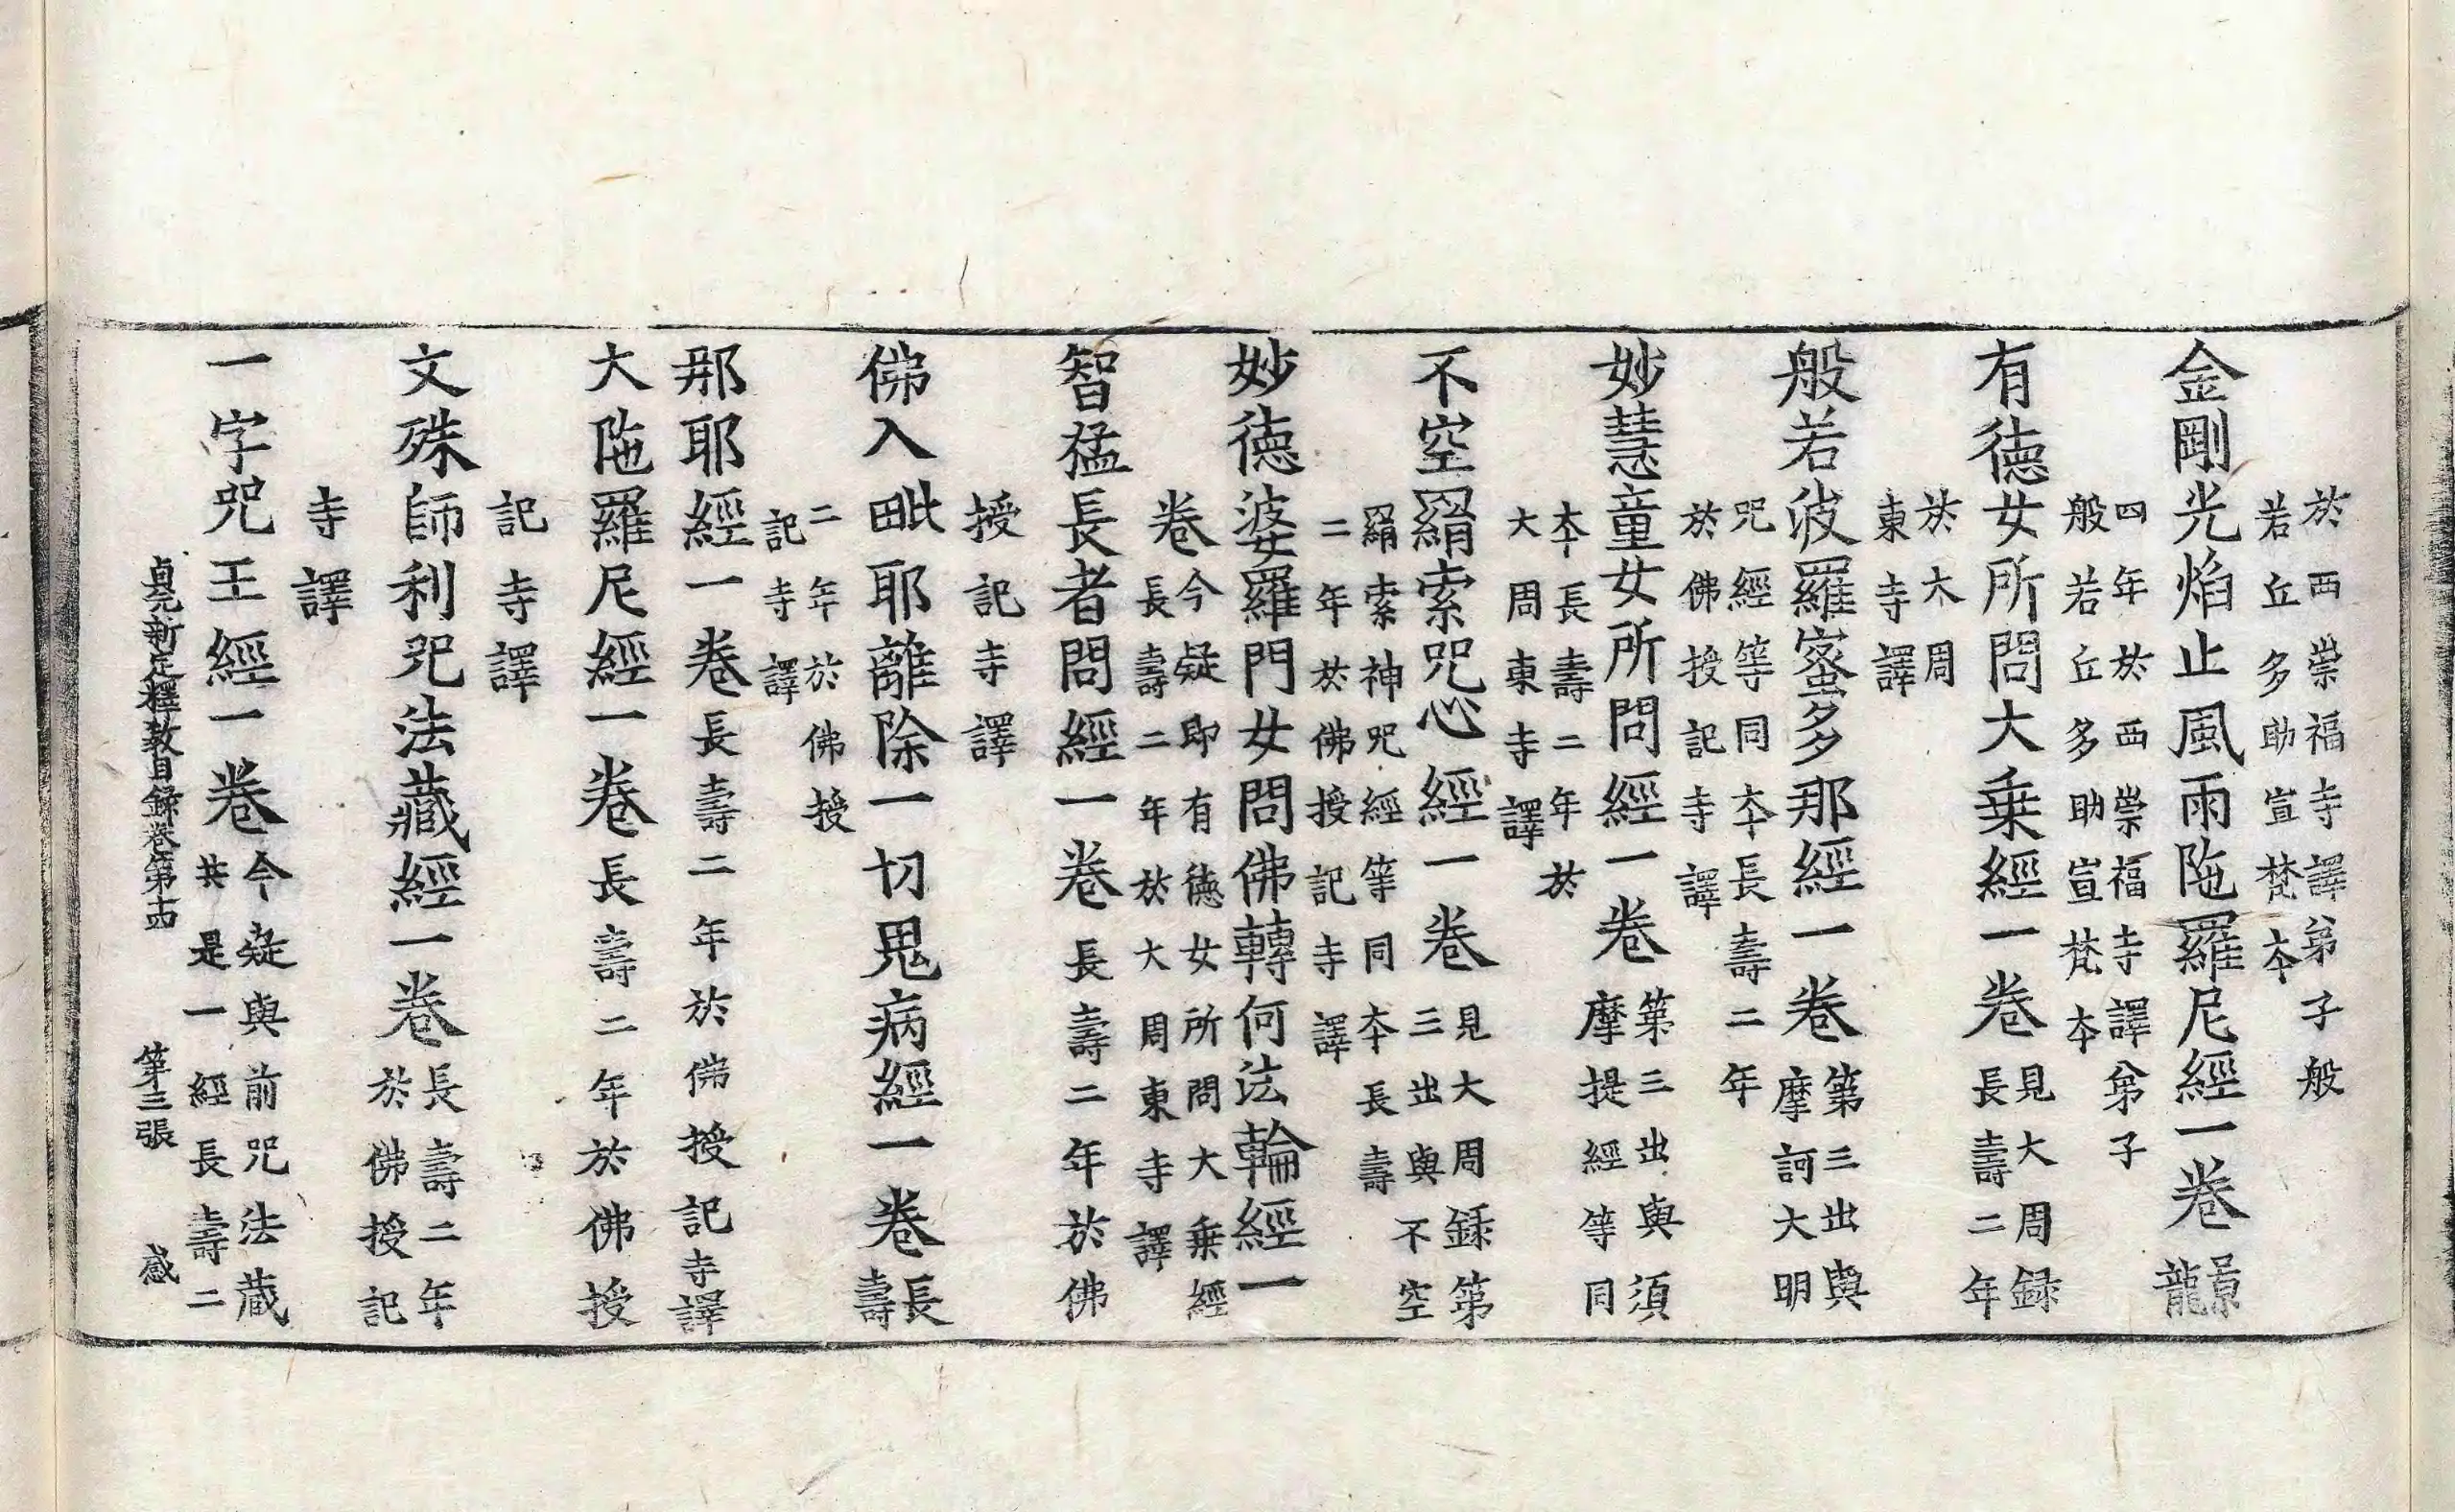 於西崇福寺譯弟子般
若丘多助宣梵夲
金剛光焰止風雨陁羅尼經一卷景龍
四年於西崇福寺譯弟子
般若丘多助宣梵夲
有德女所問大乗經一卷見大周録
長壽二年
於大周
東寺譯
般若波羅蜜多那經一卷第三出與
摩訶大明
咒經等同夲長壽二年
於佛授記寺譯
妙慧童女所問經一卷第三出與須
摩提經等同
夲長壽二年於
大周東寺譯
不空羂索咒心經一卷見大周録第
三出與不空
羂索神咒經等同夲長壽
二年於佛授記寺譯
妙德婆羅門女問佛轉何法輪經一
卷今疑即有德女所問大乗經
長壽二年於大周東寺譯
智猛長者問經一卷長壽二年於佛
授記寺譯
佛入毗耶離除一切鬼病經一卷長壽
二年於佛授
記寺譯
那耶經一卷長壽二年於佛授記寺譯
大陁羅尼經一卷長壽二年於佛授
記寺譯
文殊師利咒法藏經一卷長壽二年
於佛授記
寺譯
一字咒王經一卷今疑與前咒法蔵
共是一經長壽二
貞元新定釋教目録卷第十四 第三張 感